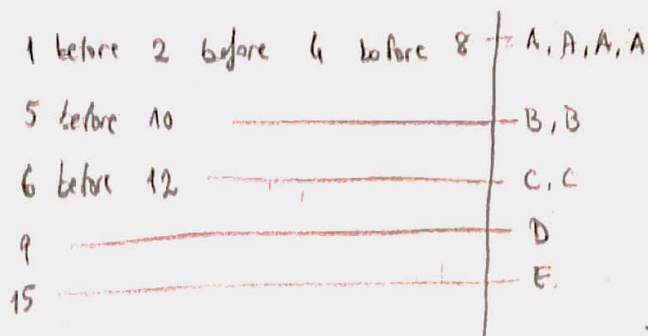 1 before 2 before 4 before 8 A, A, A, A
5 before 10 B, B
6 before 12 C, C
9 D
15 E.